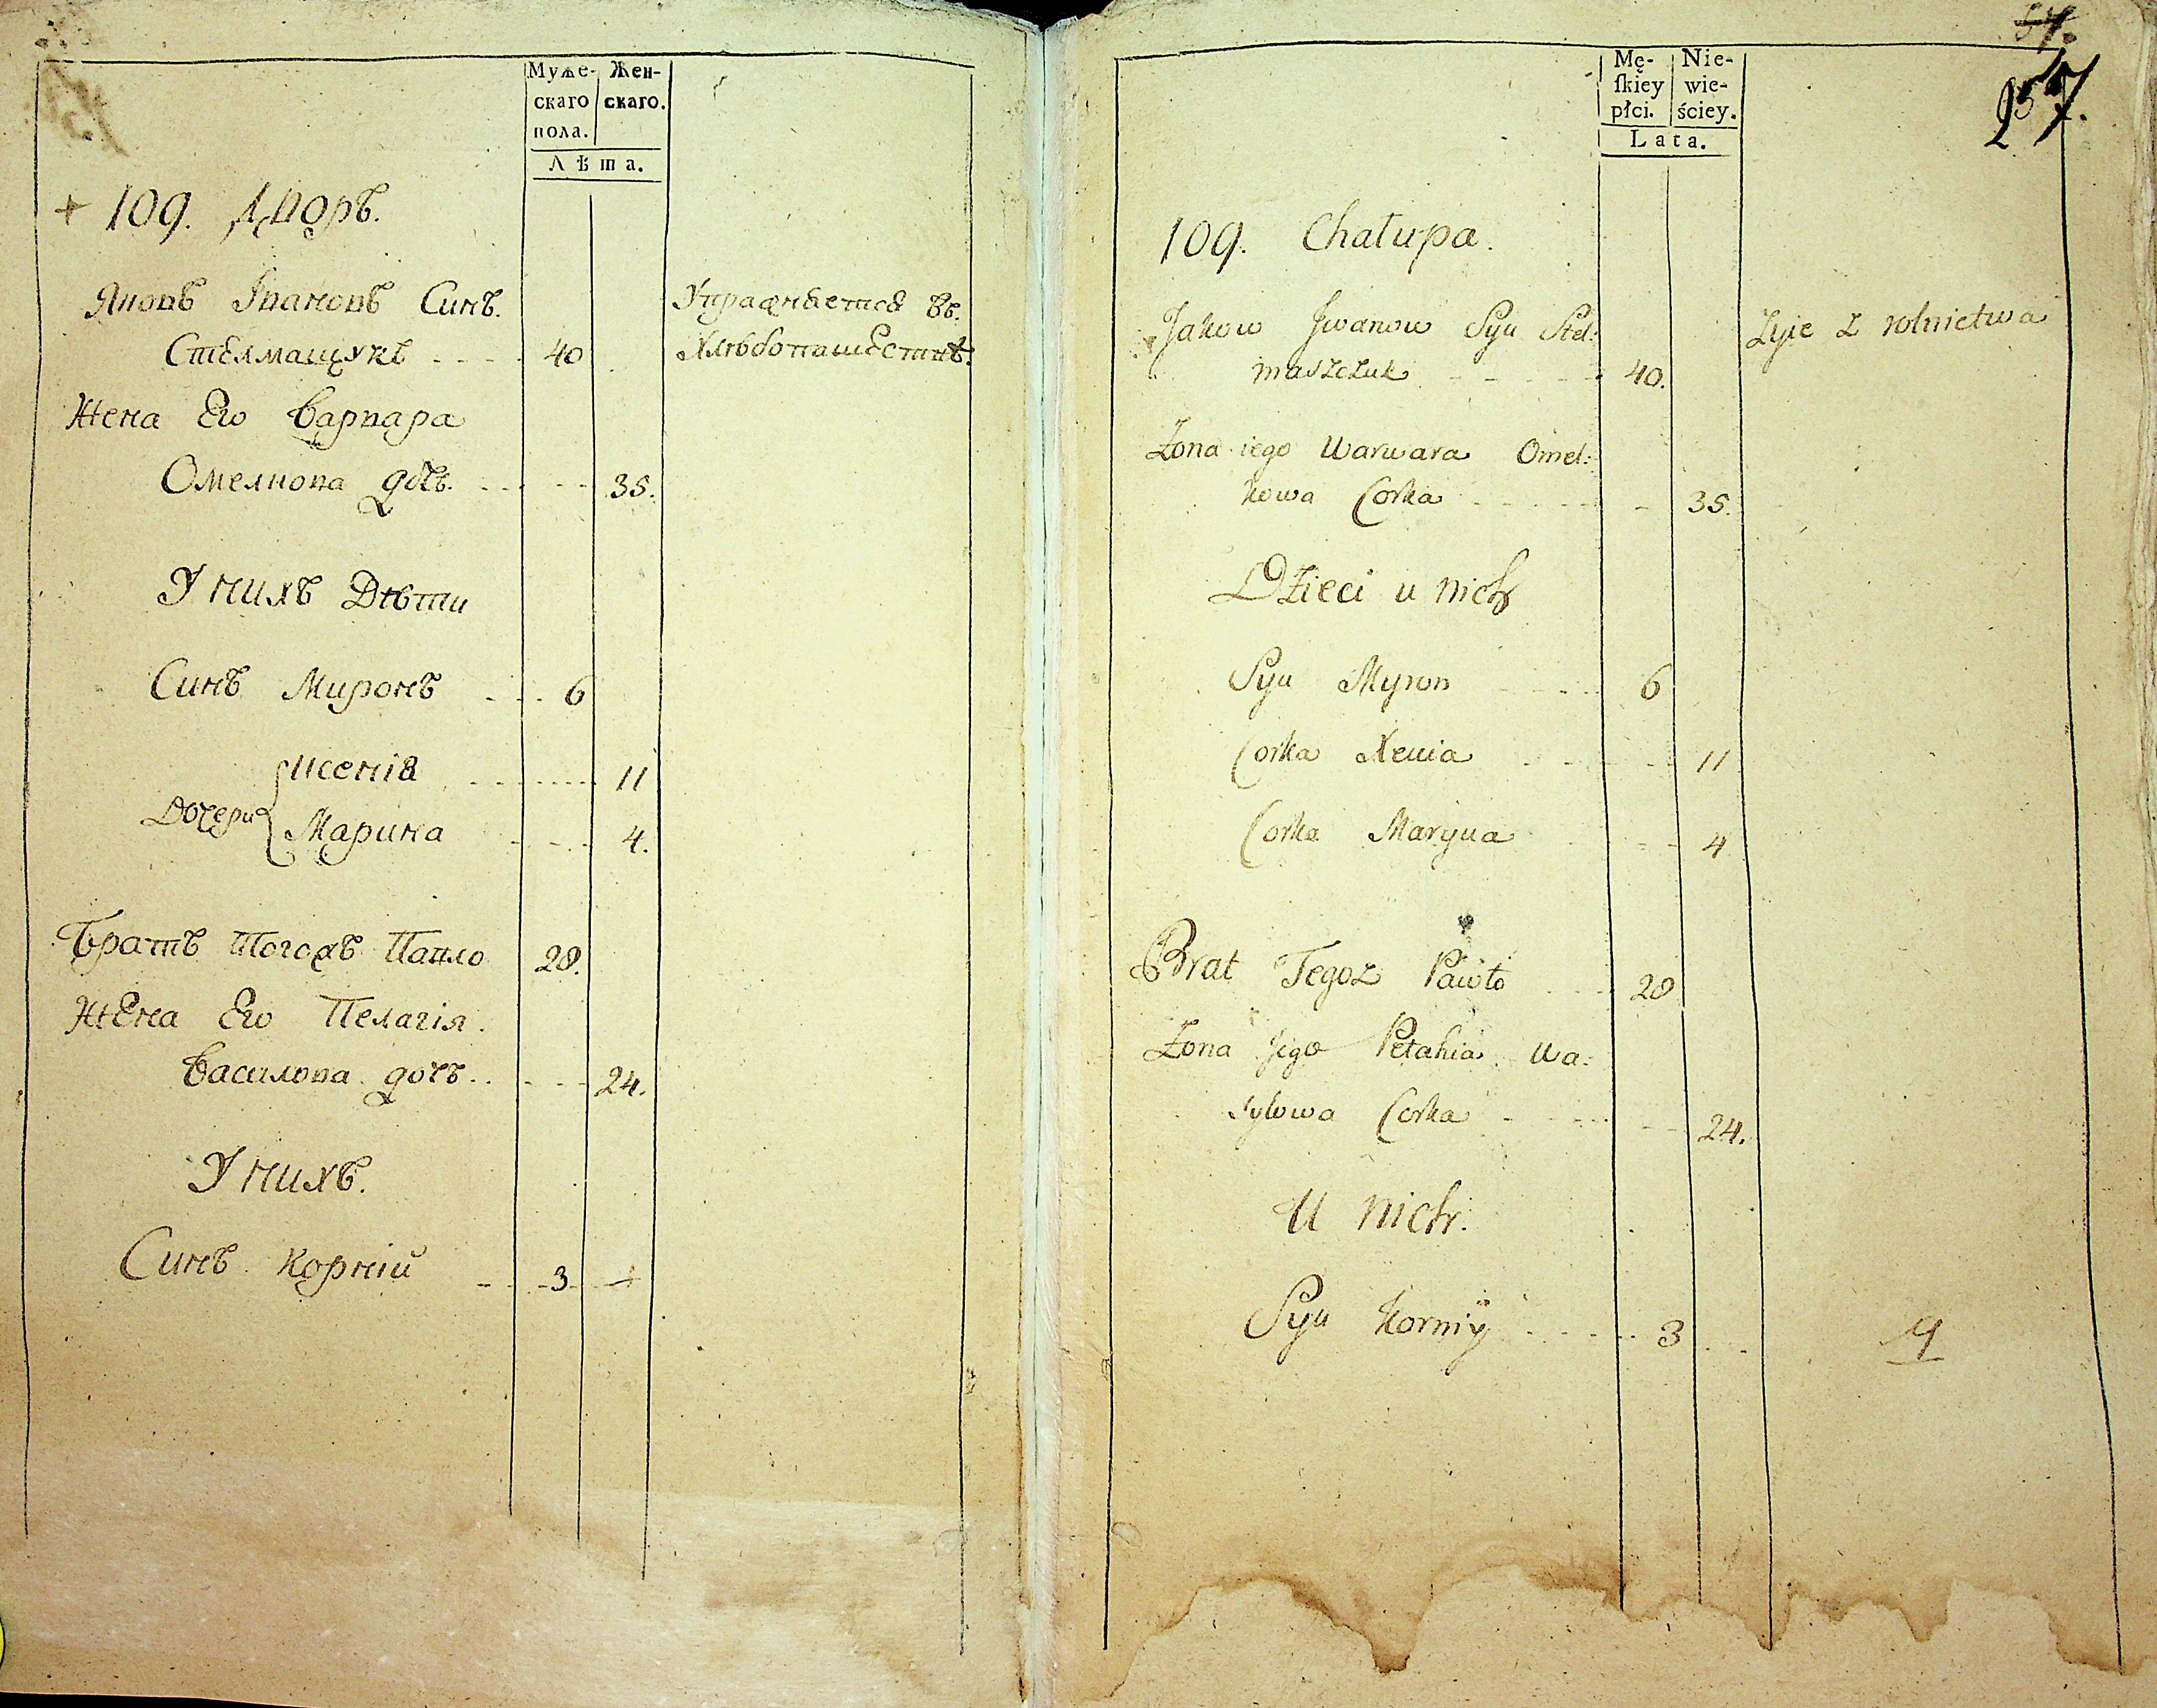 Муже- Жен-
скаго скаго.
пола.
Лѣта.
+ 109. Дворъ.
Яковъ Івановъ Синъ. Упражняется въ
Стелмащукъ 40 Хлѣбопашествѣ.
Жена Его Варвара
Омелкова дочь. 35.
У нихъ Дѣти
Синъ Миронъ 6
Ксенія 11
Дочери
Марина 4.
Братъ тогожъ Павло 28.
Жена Его Пелагія.
Василова дочь. 24.
У нихъ.
Синъ Корній 3
54.
257.
Mę- Nie-
ſkiey wie-
płci. ściey.
Lata.
109. Chałupa.
Jakow Jwanow Syn Stel: Zyie z rolnictwa
maszczuk 40.
Żona iego Warwara Omel:
kowa Corka 35.
Dzieci u nich
Syn Myron 6
Corka Xenia 11
Corka Maryna 4
Brat Tegoż Pawło 28
Żona Jego Pelahia Wa:
sylowa Corka 24.
U nich.
Syn Korniy 3